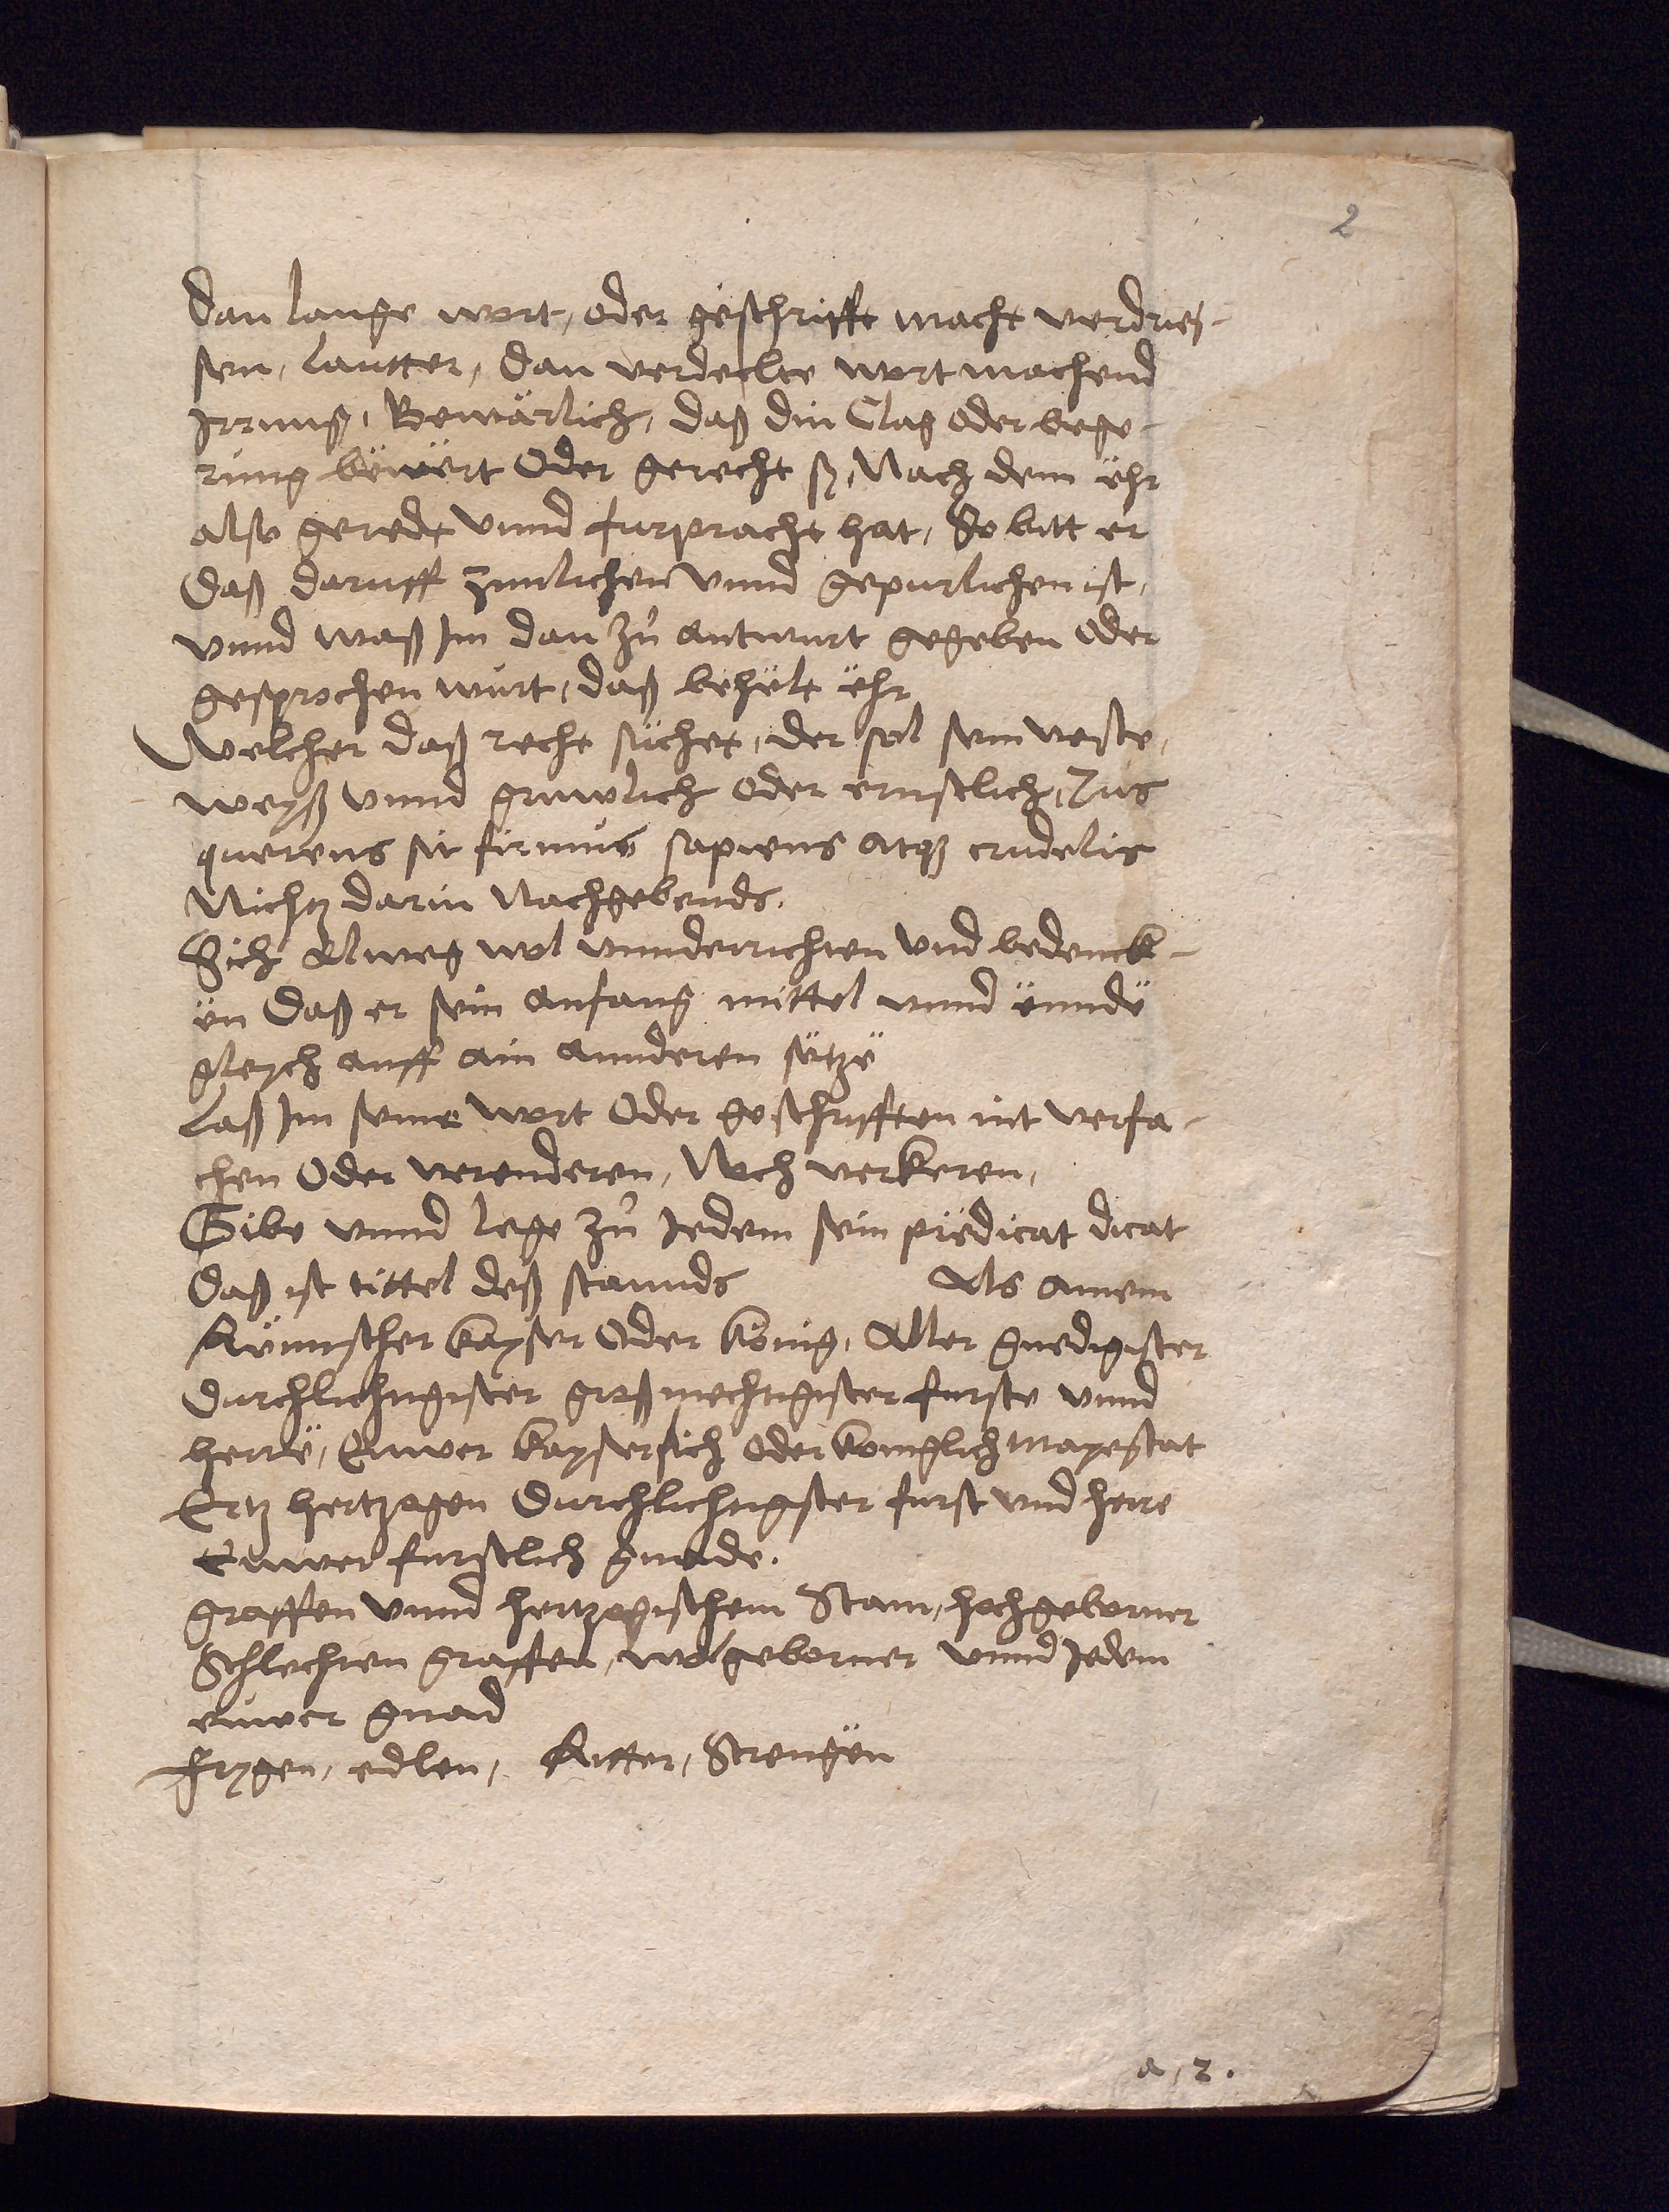 2
Dan lange wort, oder geschrifft macht verdries-
sen, Lautter, Dan verdeckte wort machend
Irrung, Bewärlich, daß din Clag oder bege-
rung bëwërt Oder gerecht sÿ, Nach dem ëhr
also geredt vnnd furpracht hat, So bitt er
Daß daruff zimlichen vnnd gepurlichen ist,
vnnd waß Im dan zů antwurt gegeben Oder
gesprochen wurt, daß behëlt ëhr
Welcher daß recht süchet, der sol sein veste,
weyß vnnd gruwlich oder ernstlich, Jus
querens sit firmus sapiens atq3 crudelis
Nichtz darin Nachgebends.
Sich Alweg wol vnnderrichten vnd bedenck-
ën Daß er sein anfang mittel vnnd ënndë
gleych auff ain annderen sëtzë
Laß Im seine Wort Oder geschrifften nit verfa-
chen Oder verenderen, Noch verkeren,
Gibe vnnd lege zů Jedem sein prëdicat dicat
Daß ist tittel deß stannds Als ainem
Römischer kayser Oder König, Aller gnedigister
Durchlichtigister großmechtigister furste vnnd
herrë, Euwer kayserlich oder koniglich mayestat
Ertz hertzogen Durchlichtigster furst vnd herre
Euwer furstlich gnade.
graffen vnnd hertzogischem Stam, hochgeborner
Schlechten graffen, wolgeborner vnnd Jedem
euwer gnad
frygen, edlen, Ritter, Strengën
a, 2.